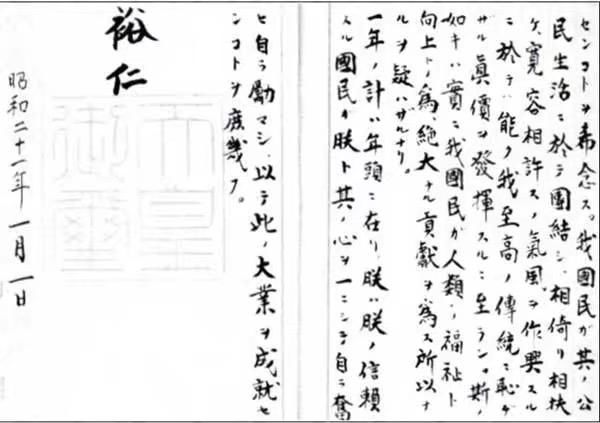 センコトヲ希念ス。我國民ガ其ノ公
民生活ニ於テ團結シ、相倚リ相扶
ケ、寛容相許スノ氣風ヲ作興スル
ニ於テハ能ク我至高ノ傳統ニ恥ヂ
ザル眞價ヲ發揮スルニ至ラン。斯ノ
如キハ實ニ我國民ガ人類ノ福祉ト
向上トノ爲、絶大ナル貢獻ヲ爲ス所以ナ
ルヲ疑ハザルナリ。
一年ノ計ハ年頭ニ在リ、朕ハ朕ノ信頼
スル國民ガ朕ト其ノ心ヲ一ニシテ自ラ奮
ヒ自ラ勵マシ、以テ此ノ大業ヲ成就セ
ンコトヲ庶幾フ。
裕仁
天皇
御璽
昭和二十一年一月一日